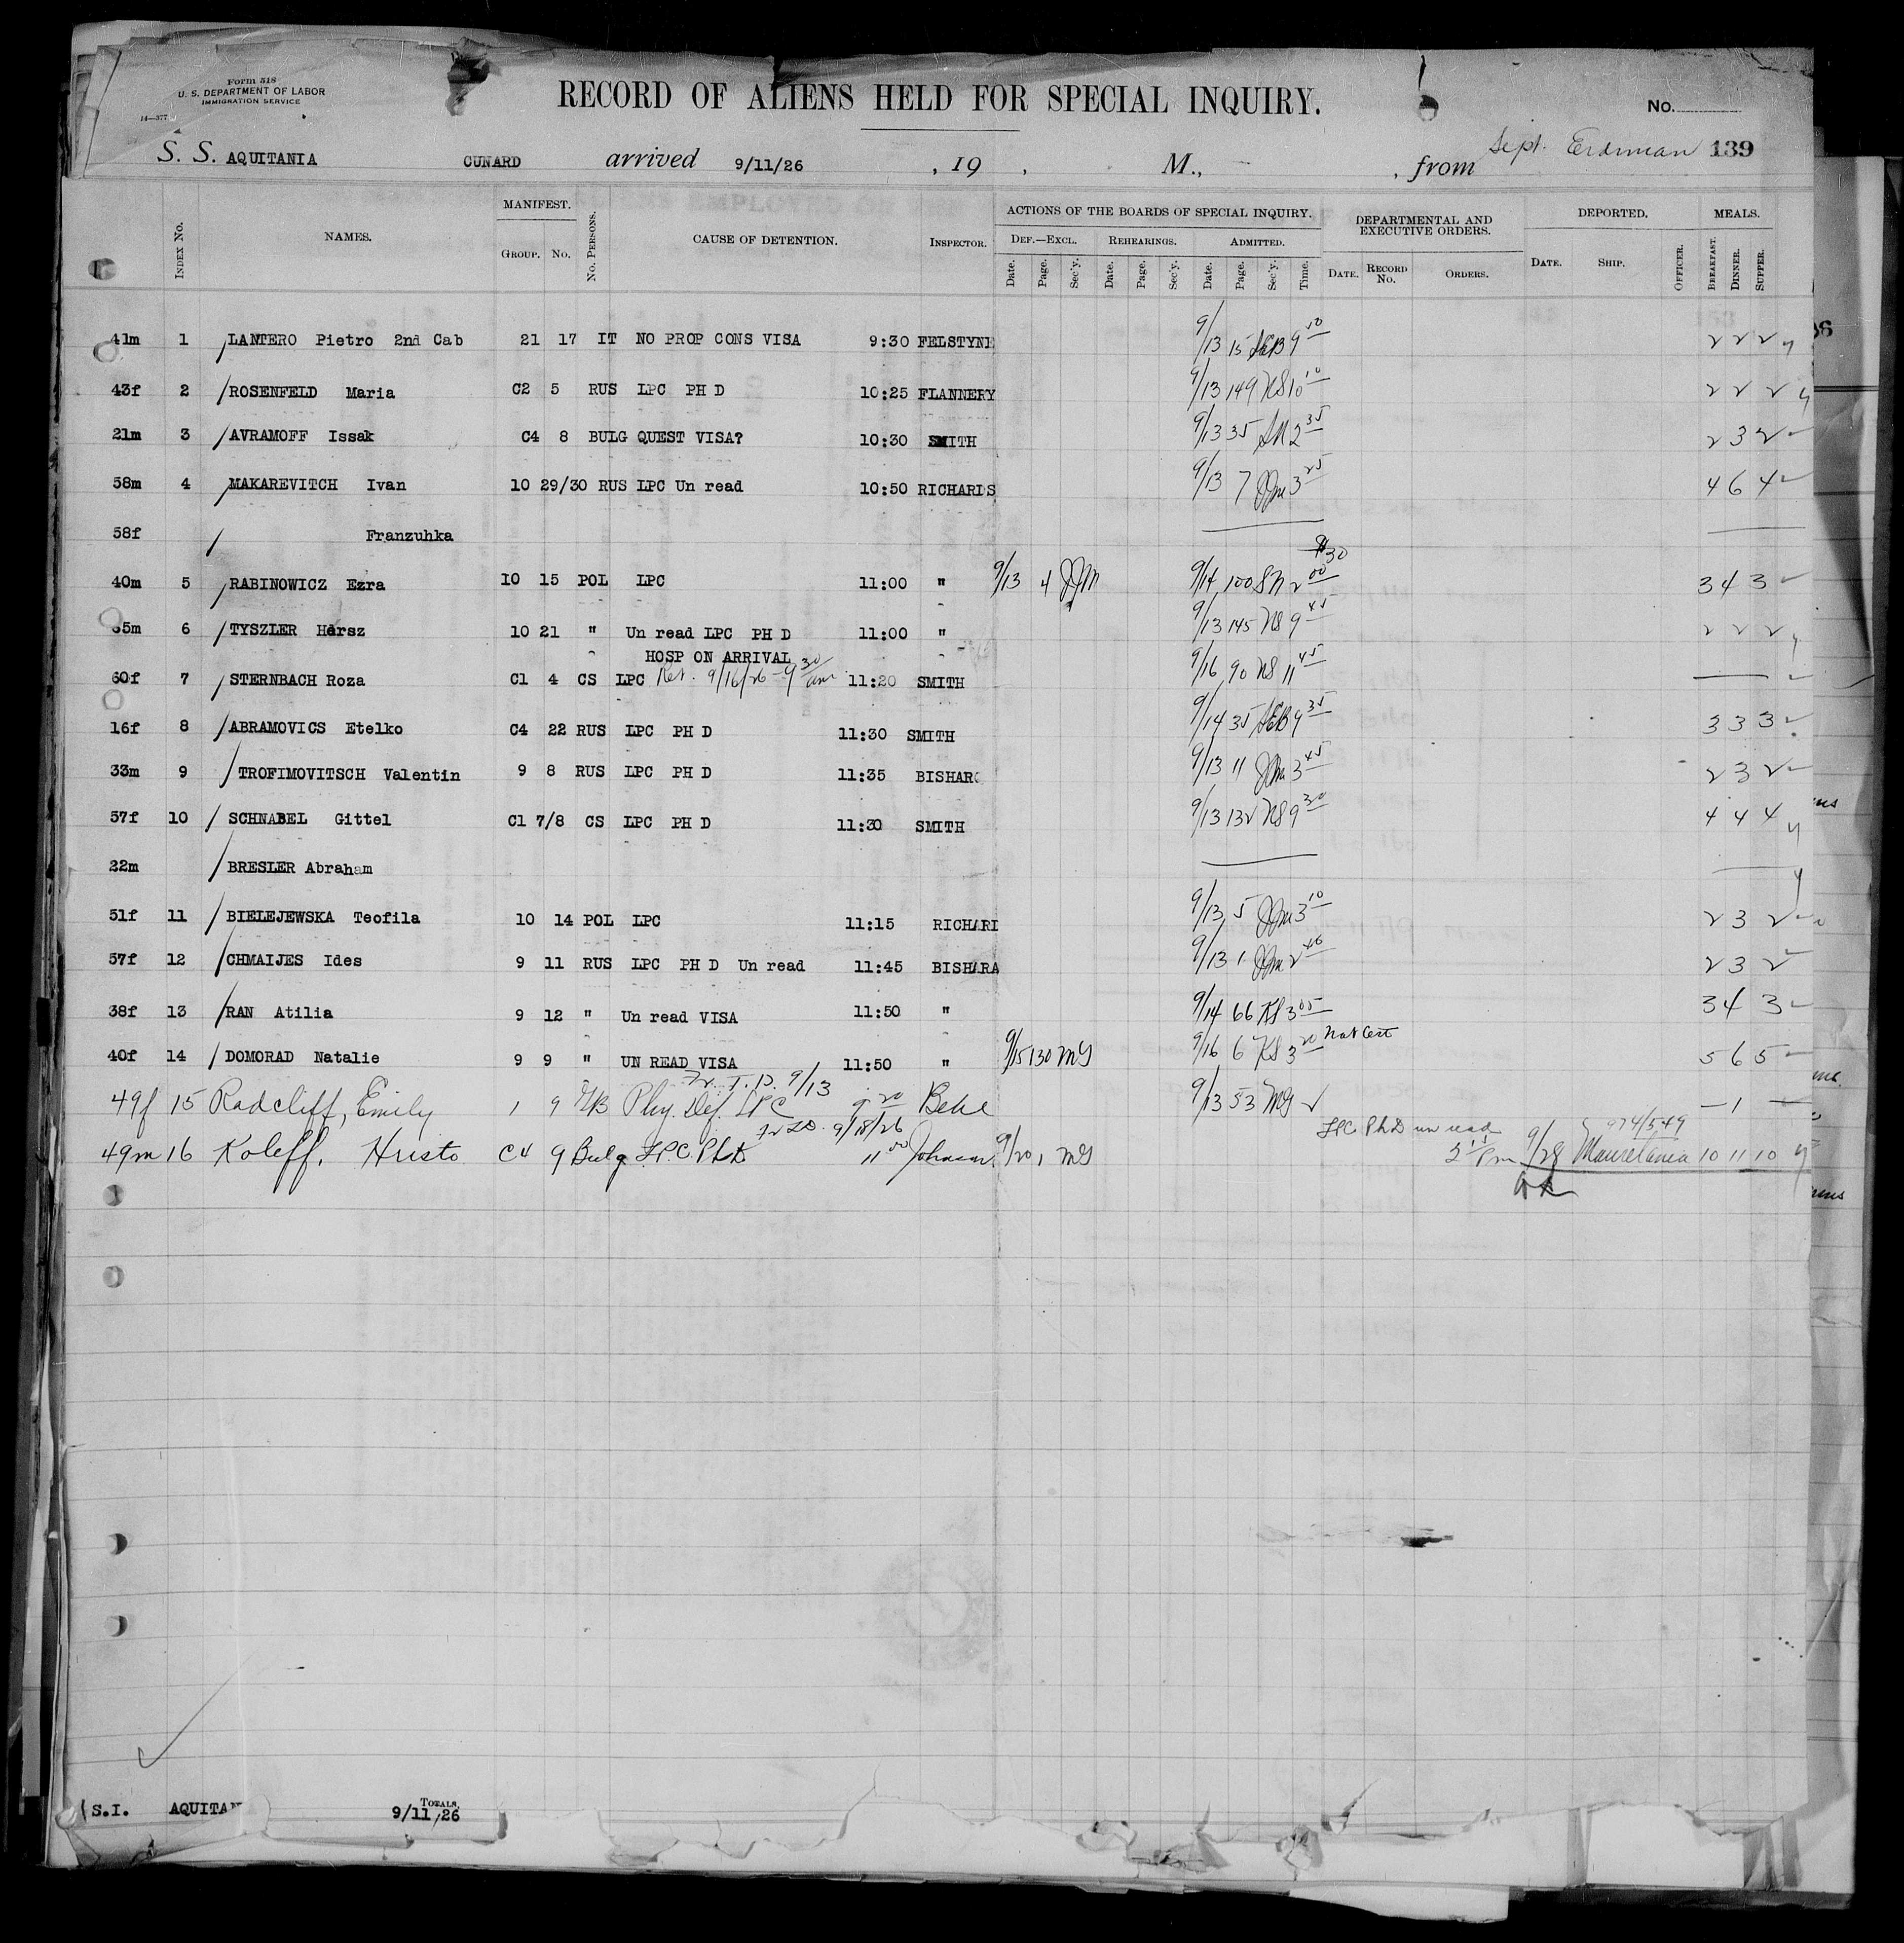 Form 518
U. S. DEPARTMENT OF LABOR
IMMIGRATION SERVICE
14—377
RECORD OF ALIENS HELD FOR SPECIAL INQUIRY.
No.
S. S. AQUITANIA CUNARD arrived 9/11/26 , 19 , M., , from Sept. Erdman 139
INDEX No. NAMES. MANIFEST. GROUP. No. No. PERSONS. CAUSE OF DETENTION. INSPECTOR. ACTIONS OF THE BOARDS OF SPECIAL INQUIRY. DEPARTMENTAL AND EXECUTIVE ORDERS. DEPORTED. MEALS.
DEF.—EXCL. REHEARINGS. ADMITTED.
Date. Page. Sec'y. Date. Page. Sec'y. Date. Page. Sec'y. Time. DATE. RECORD No. ORDERS. DATE. SHIP. OFFICER. BREAKFAST. DINNER. SUPPER.
41m 1 LANTERO Pietro 2nd Cab 21 17 IT NO PROP CONS VISA 9:30 FELSTYNE 9/13 15 9 2 2 2
43f 2 ROSENFELD Maria C2 5 RUS LPC PH D 10:25 FLANNERY 9/13 149 NS 10 10 2 2 2
21m 3 AVRAMOFF Issak C4 8 BULG QUEST VISA? 10:30 SMITH 9/13 35 SN 2 35 2 3 2
58m 4 MAKAREVITCH Ivan 10 29/30 RUS LPC Un read 10:50 RICHARDS 9/13 7 JJM 3 25 4 6 4
58f Franzuhka
40m 5 RABINOWICZ Ezra 10 15 POL LPC 11:00 " 9/13 4 JJM 9/14 100 SN 2 00 3 4 3
6 TYSZLER Hersz 10 21 " Un read LPC PH D 11:00 " 9/13 145 NS 9 45 2 2 2
HOSP ON ARRIVAL
60f 7 STERNBACH Roza C1 4 CS LPC Ret. 9/16/26 - 9 30 am 11:20 SMITH 9/16 90 NS 11 45
16f 8 ABRAMOVICS Etelko C4 22 RUS LPC PH D 11:30 SMITH 9/14 35 9 35 3 3 3
33m 9 TROFIMOVITSCH Valentin 9 8 RUS LPC PH D 11:35 BISHAR 9/13 11 JJM 3 45 2 3 2
57f 10 SCHNABEL Gittel C1 7/8 CS LPC PH D 11:30 SMITH 9/13 132 NS 9 30 4 4 4
22m BRESLER Abraham
51f 11 BIELEJEWSKA Teofila 10 14 POL LPC 11:15 RICHARD 9/13 5 JJM 3 10 2 3 2
57f 12 CHMAIJES Ides 9 11 RUS LPC PH D Un read 11:45 BISHARA 9/13 1 JJM 2 40 2 3 2
38f 13 RAN Atilia 9 12 " Un read VISA 11:50 " 9/14 66 KS 3 05 3 4 3
40f 14 DOMORAD Natalie 9 9 " UN READ VISA 11:50 " 9/15 130 MG 9/16 6 KS 3 20 5 6 5
Fr. T. D. 9/13
49f 15 Radcliff, Emily 1 9 Phy. Def. LPC 9 20 9/13 53 MG 1
9/18/26
LPC PhD un read 974/549
49m 16 Koleff, Hristo C4 9 Bulg LPC PhD 11 00 Johnson 9/20 1 MG 9/28 Mauretania 10 11 10
S.I. AQUITAN TOTALS. 9/11/26